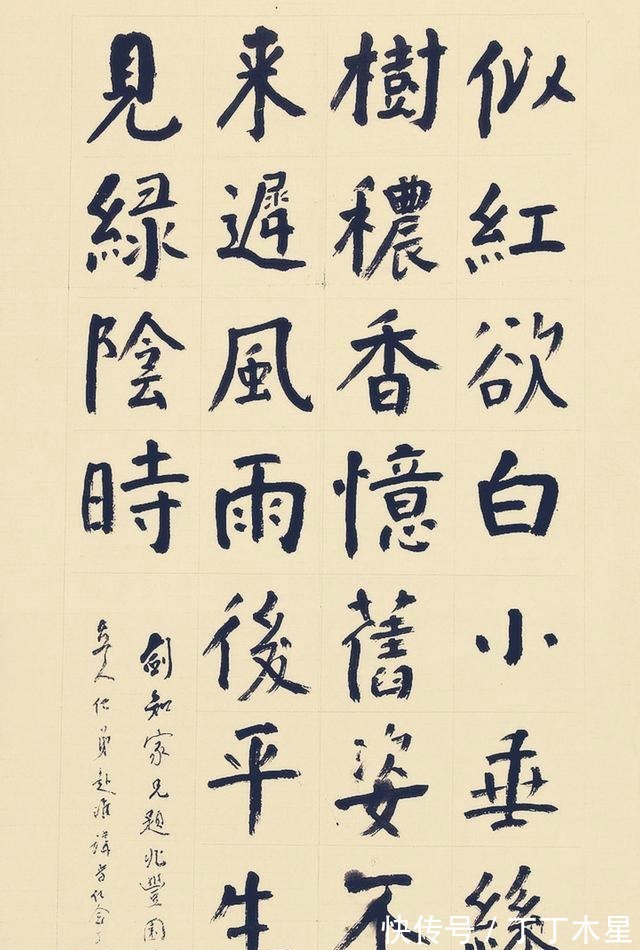 似紅欲白小垂絲
樹穠香憶舊姿不
来遲風雨後平生
見緑陰時
劍知家兄題兆豐園
人仁
快传号 / 丁丁木星